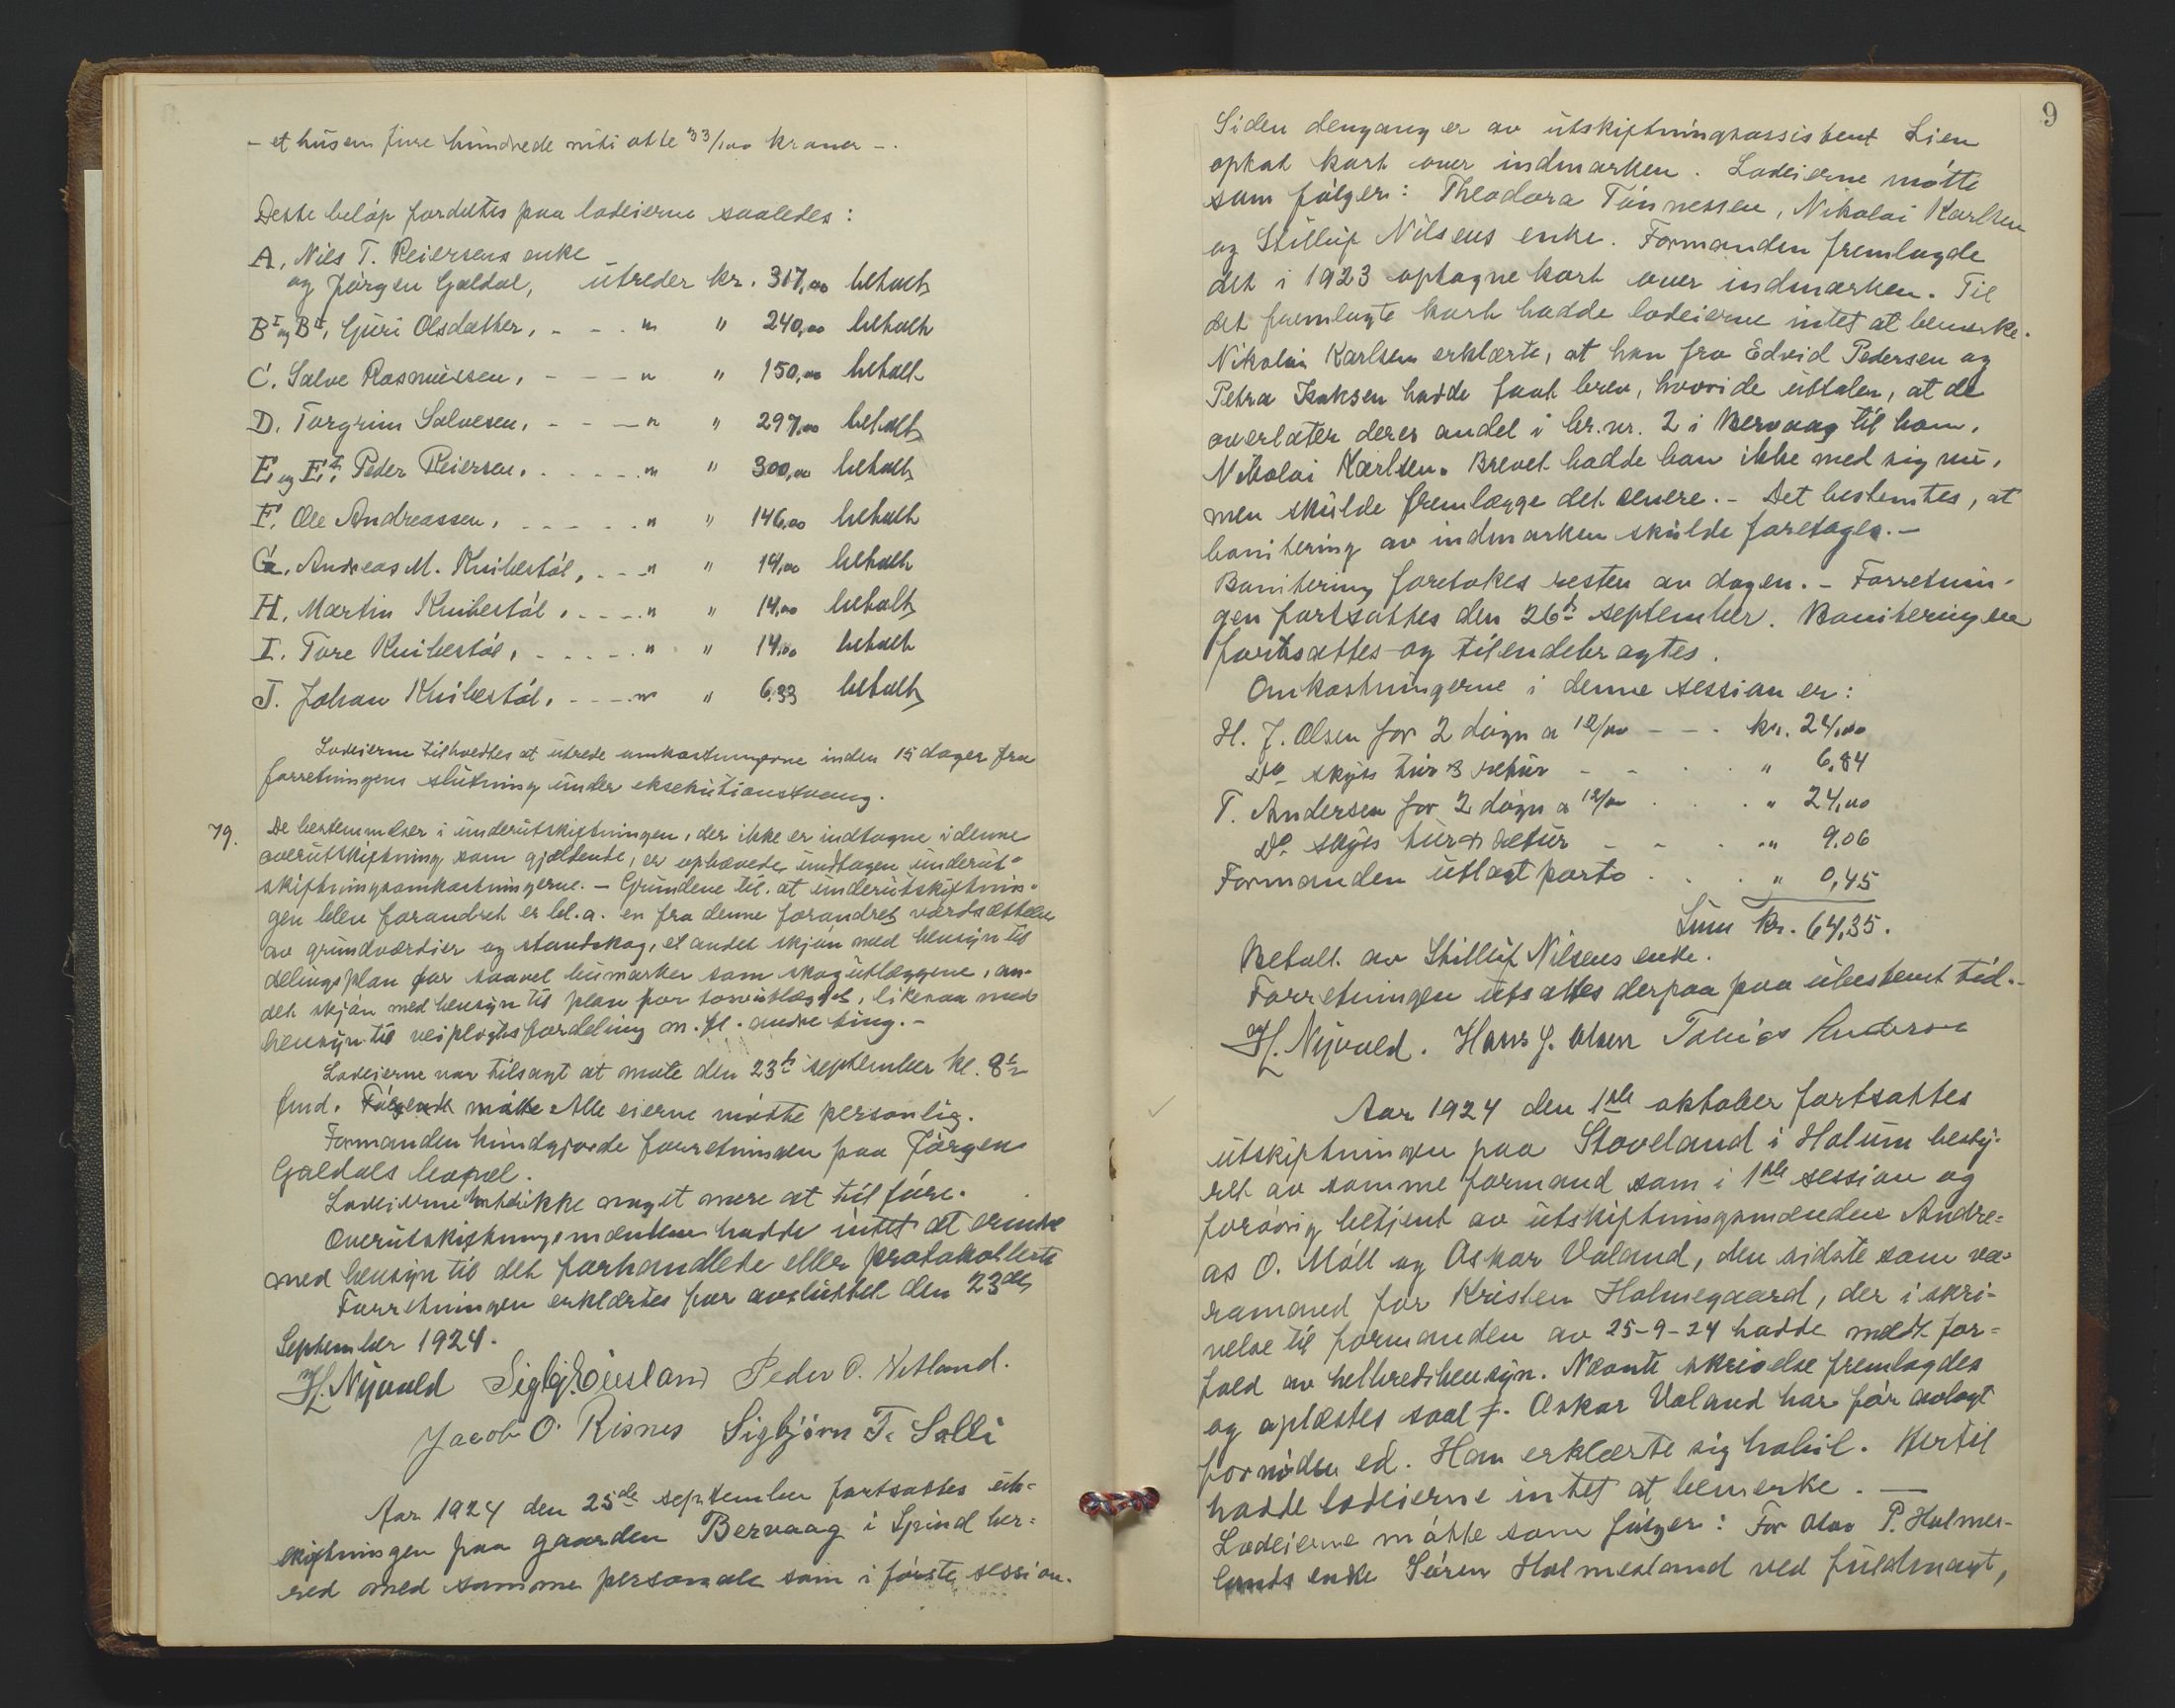 - et tusen fire hundrede niti otte 33/100 kroner -.
Dette beløp fordeltes paa lodeierne saaledes:
A, Nils T. Reiersens enke
og Jørgen Galdal, utreder kr. 317,00 betalt
B I og B II, Guri Olsdatter, - - - " " 240,00 betalt
C. Salve Rasmussen, - - - " " 150,00 betalt
D. Torgrim Salvesen, - - - " " 297,00 betalt
E og E I, Peder Reiersen, - - - - " " 300,00 betalt
F. Ole Andreassen, - - - - - " " 146,00 betalt
G. Andreas M. Knibestøl, - - - " " 14,00 betalt
H. Martin Knibestøl, - - - - " " 14,00 betalt
I. Tore Knibestøl, - - - - - " " 14,00 betalt
J. Johan Knibestøl, - - - - " " 6,33 betalt
Lodeierne tilholdtes at utrede omkostningerne inden 15 dager fra
forretningens slutning under eksekutionstvang.
79. De bestemmelser i underutskiftningen, der ikke er indtagne i denne
overutskiftning som gjældende, er ophævede undtagen underut-
skiftningsomkostningerne. - Grundene til at underutskiftnin-
gen blev forandret er bl.a. en fra denne forandret værdsættelse
av grundværdier og standskog, et andet skjøn med hensyn til
delingsplan for saavel heimarker som skogutlæggene, an-
det skjøn med hensyn til plan for torvutlægget, likesaa med
hensyn til veipligtsfordeling m. fl. andre ting. -
Lodeierne var tilsagt at møte den 23de september kl. 8 1/2
fmd. Følgende møtte Alle eierne møtte personlig.
Formanden kundgjorde forretningen paa Jørgen
Galdals bopæl.
Lodeierne hadde ikke noget mere at tilføre.
Overutskiftningsmændene hadde intet at erindre
med hensyn til det forhandlede eller protokollerte
Forretningen erklærtes for avsluttet den 23de
September 1924.
H. Nyvold Sigbj. Eiesland Peder O. Vetland.
Jacob O. Risnes Sigbjørn T. Solli
Aar 1924 den 25de september fortsattes ut-
skiftningen paa gaarden Bervaag i Spind her-
red med samme personale som i første session.
9
Siden dengang er av utskiftningsassistent Lien
optat kart over indmarken. Lodeierne møtte
som følger: Theodora Tønnessen, Nikolai Karlsen
og Stilluf Nilsens enke. Formanden fremlagde
det i 1923 optagne kart over indmarken. Til
det fremlagte kart hadde lodeierne intet at bemerke.
Nikolai Karlsen erklærte, at han fra Edvid Pedersen og
Petra Isaksen hadde faat brev, hvori de uttaler, at de
overlater deres andel i br.nr. 2 i Bervaag til ham,
Nikolai Karlsen. Brevet hadde han ikke med sig nu,
men skulde fremlægge det senere. - Det bestemtes, at
bonitering av indmarken skulde foretages. -
Bonitering foretokes resten av dagen. - Forretnin-
gen fortsattes den 26de september. Boniteringen
fortsattes og tilendebragtes.
Omkostningerne i denne session er:
H. J. Olsen for 2 døgn a 12/00 - - - kr. 24,00
Do skyss tur & retur - - . . " 6,84
T. Andersen for 2 døgn a 12/00 . . . " 24,00
Do skyss tur & retur - - . . " 9,06
Formanden utlagt porto . . . " 0,45
Sum kr. 64,35.
Betalt av Stilluf Nilsens enke.
Forretningen utsattes derpaa paa ubestemt tid.-
H. Nyvold. Hans J. Olsen Tobias Anderson
Aar 1924 den 1ste oktober fortsattes
utskiftningen paa Stoveland i Holum besty-
ret av samme formand som i 1ste session og
forøvrig betjent av utskiftningsmændene Andre-
as O. Møll og Oskar Valand, den sidste som va-
ramand for Kristen Holmegaard, der i skri-
velse til formanden av 25-9-24 hadde meldt for-
fald av helbredshensyn. Nævnte skrivelse fremlagdes
og oplæstes saal. f. Oskar Valand har før avlagt
fornøden ed. Han erklærte sig habil. Hertil
hadde lodeierne intet at bemerke. -
Lodeierne møtte som følger: For Olav P. Holmes-
lands enke Søren Holmesland ved fuldmagt,